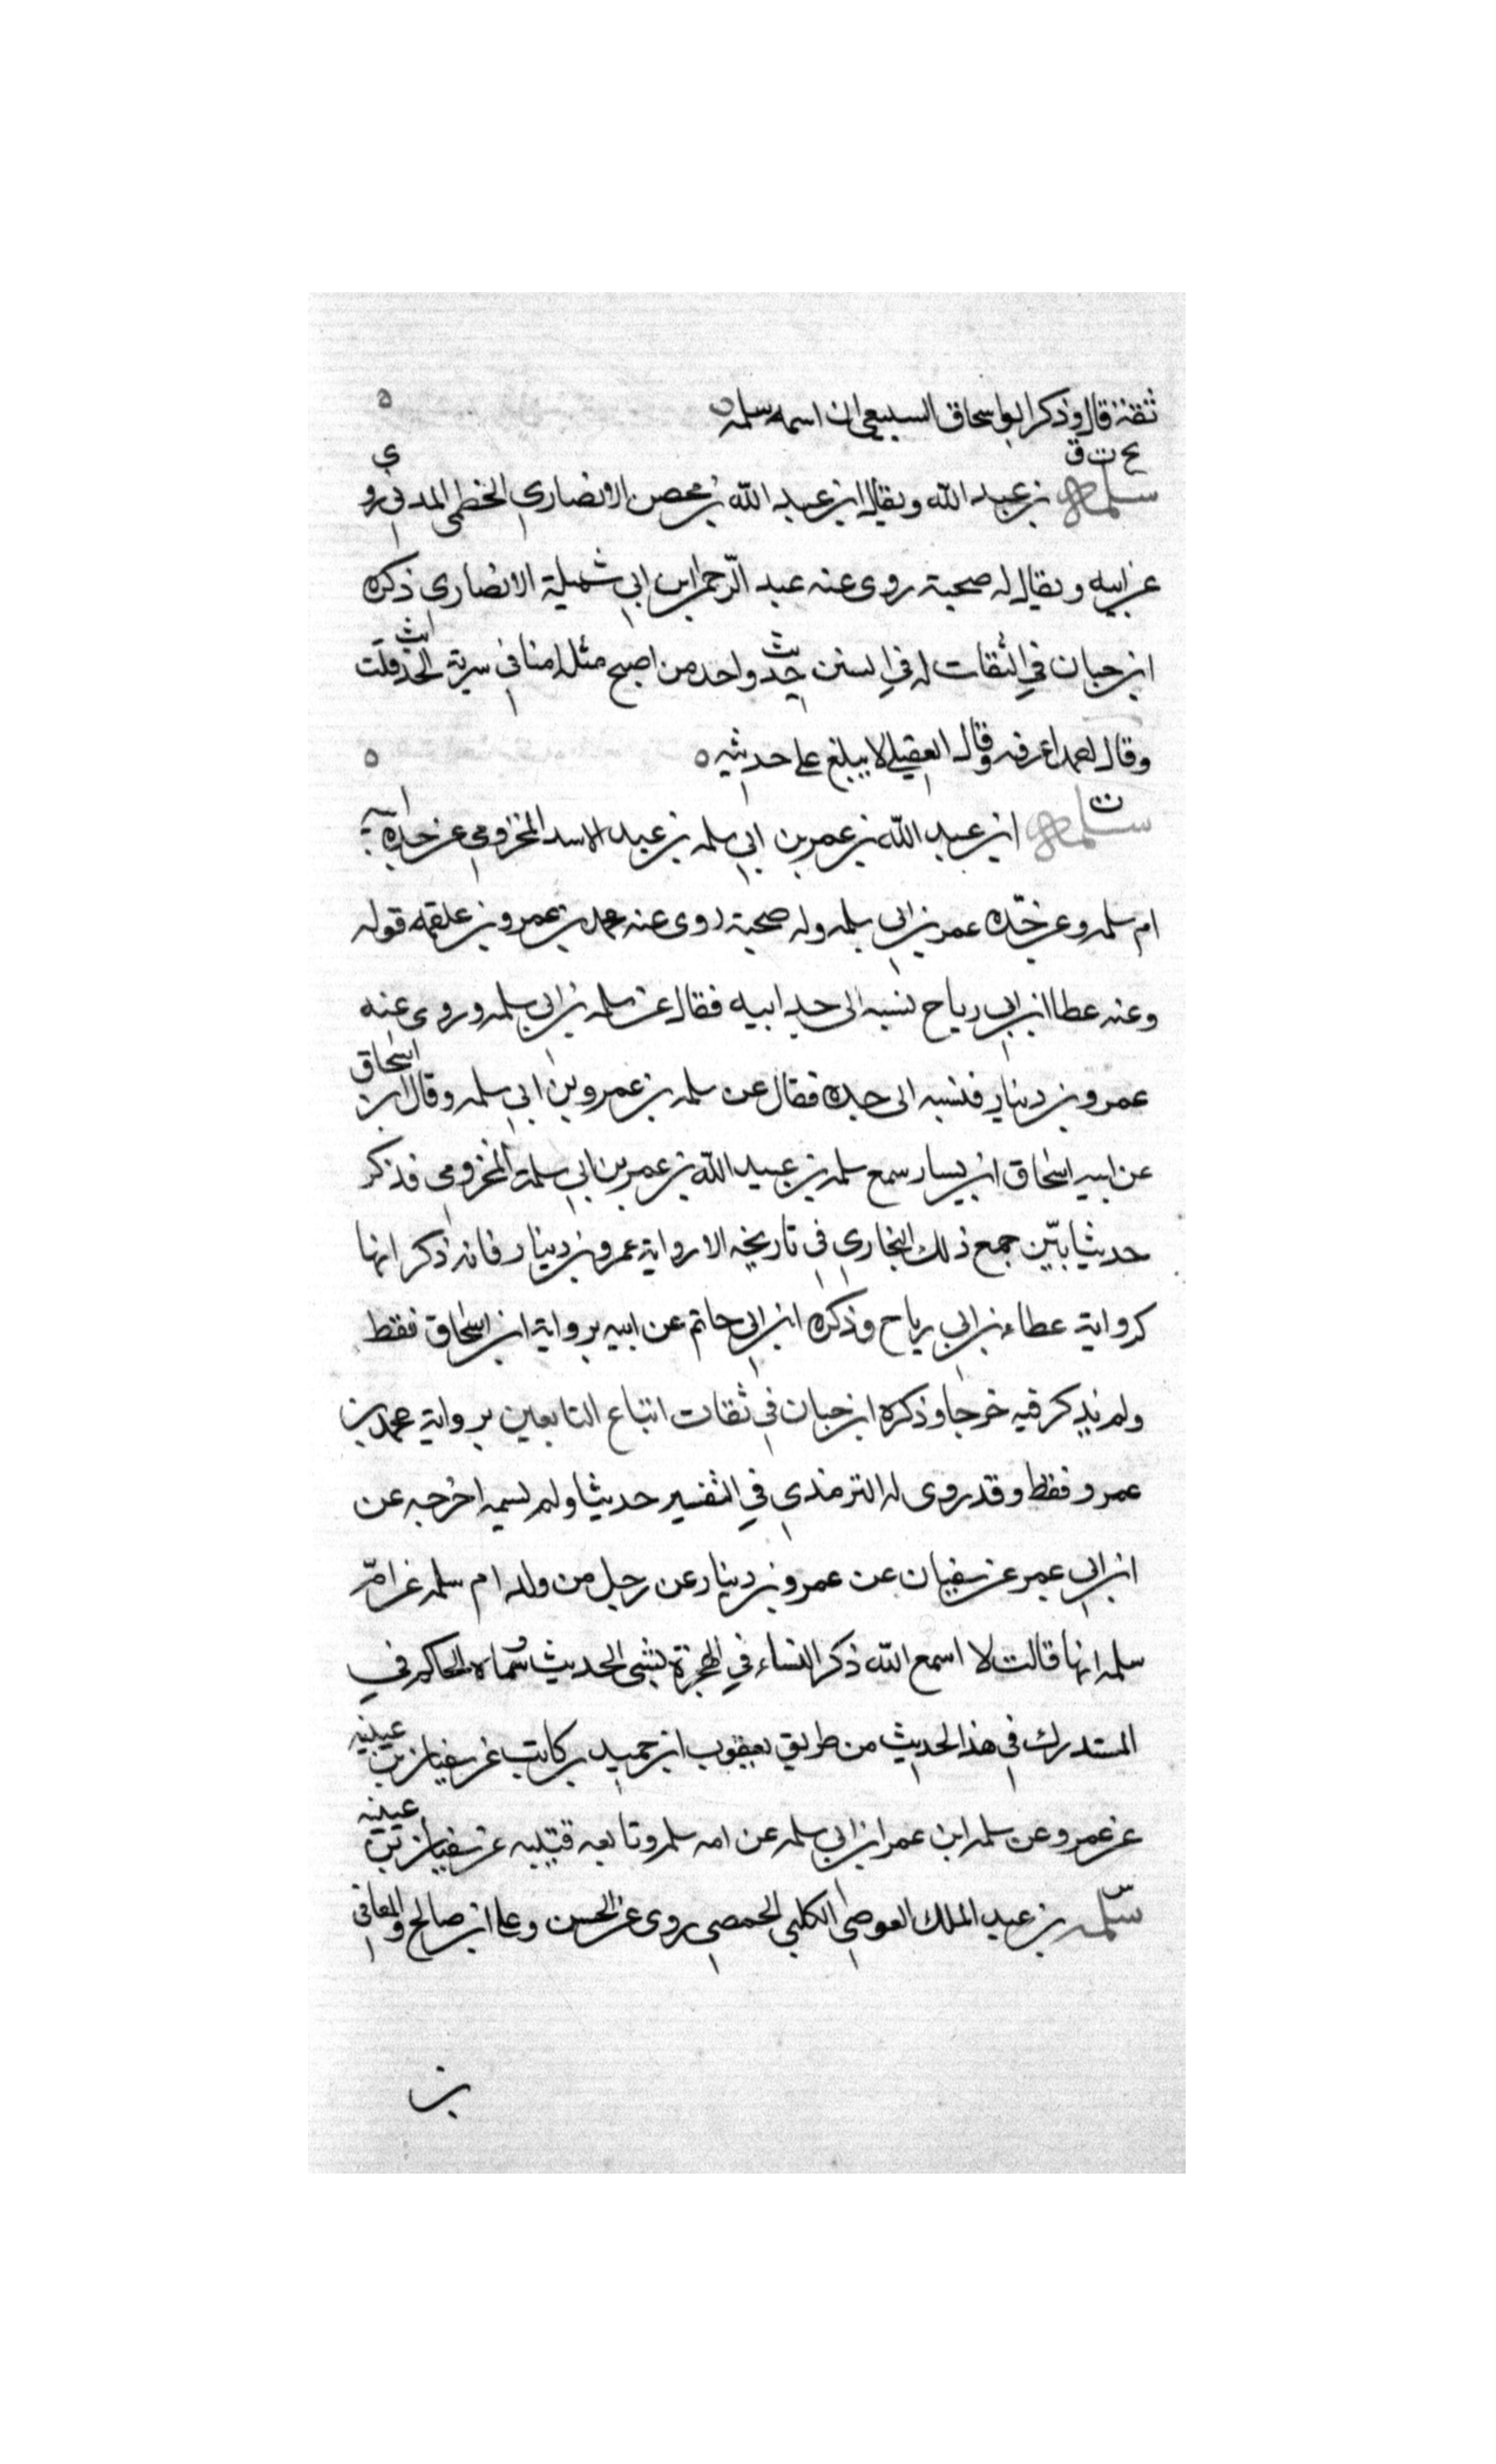 ثقة قال وذكر ابو اسحاق السبيعي ان اسمه سلمه ه
بخ ت ق
سلمه بن عبد الله ويقال ابن عبيد الله بن محصن الانصاري الخطمي المدني روى
عن ابيه ويقال له صحبة روى عنه عبد الرحمن ابن ابي شميلة الانصاري ذكره
ابن حبان في الثقات له في السنن حديث واحد من اصبح منكم امنا في سربه الحديث قلت
وقال احمد لا اعرفه وقال العقيلي لا يتابع على حديثه ه
ت
سلمه ابن عبد الله بن عمر بن ابي سلمه بن عبد الاسد المخزومي عن جدة ابيه
ام سلمه وعن جده عمر بن ابي سلمه وله صحبة روى عنه محمد بن عمرو بن علقمه قوله
وعنه عطا ابن ابي رباح نسبه الى جد ابيه فقال عن سلمه بن ابي سلمه وروى عنه
عمرو بن دينار فنسبه الى جده فقال عن سلمه بن عمرو بن ابي سلمه وقال ابن اسحاق
عن ابيه اسحاق ابن يسار سمع سلمه بن عبد الله بن عمر بن ابي سلمة المخزومي فذكر
حديثا بين جمع ذلك البخاري في تاريخه الا رواية عمرو بن دينار فانه ذكر انها
كرواية عطاء بن ابي رباح وذكره ابن ابي حاتم عن ابيه برواية ابن اسحاق فقط
ولم يذكر فيه خرجا وذكره ابن حبان في ثقات اتباع التابعين برواية محمد بن
عمرو فقط وقد روى له الترمذي في التفسير حديثا ولم يسمه اخرجه عن
ابن ابي عمر عن سفيان عن عمرو بن دينار عن رجل من ولد ام سلمه عن ام
سلمه انها قالت لا اسمع الله ذكر النساء في الهجرة بشى الحديث وسماه الحاكم في
المستدرك في هذا الحديث من طريق يعقوب ابن حميد بن كاسب عن سفيان بن عيينه
عن عمرو عن سلمه ابن عمر ابن ابي سلمه عن امه سلمه وتابعه قتيبه عن سفيان بن عيينه
س
سلمه بن عبد الملك العوصي الكلبي الحمصي روى عن الحسن وعلى ابن صالح والمعافى
بن